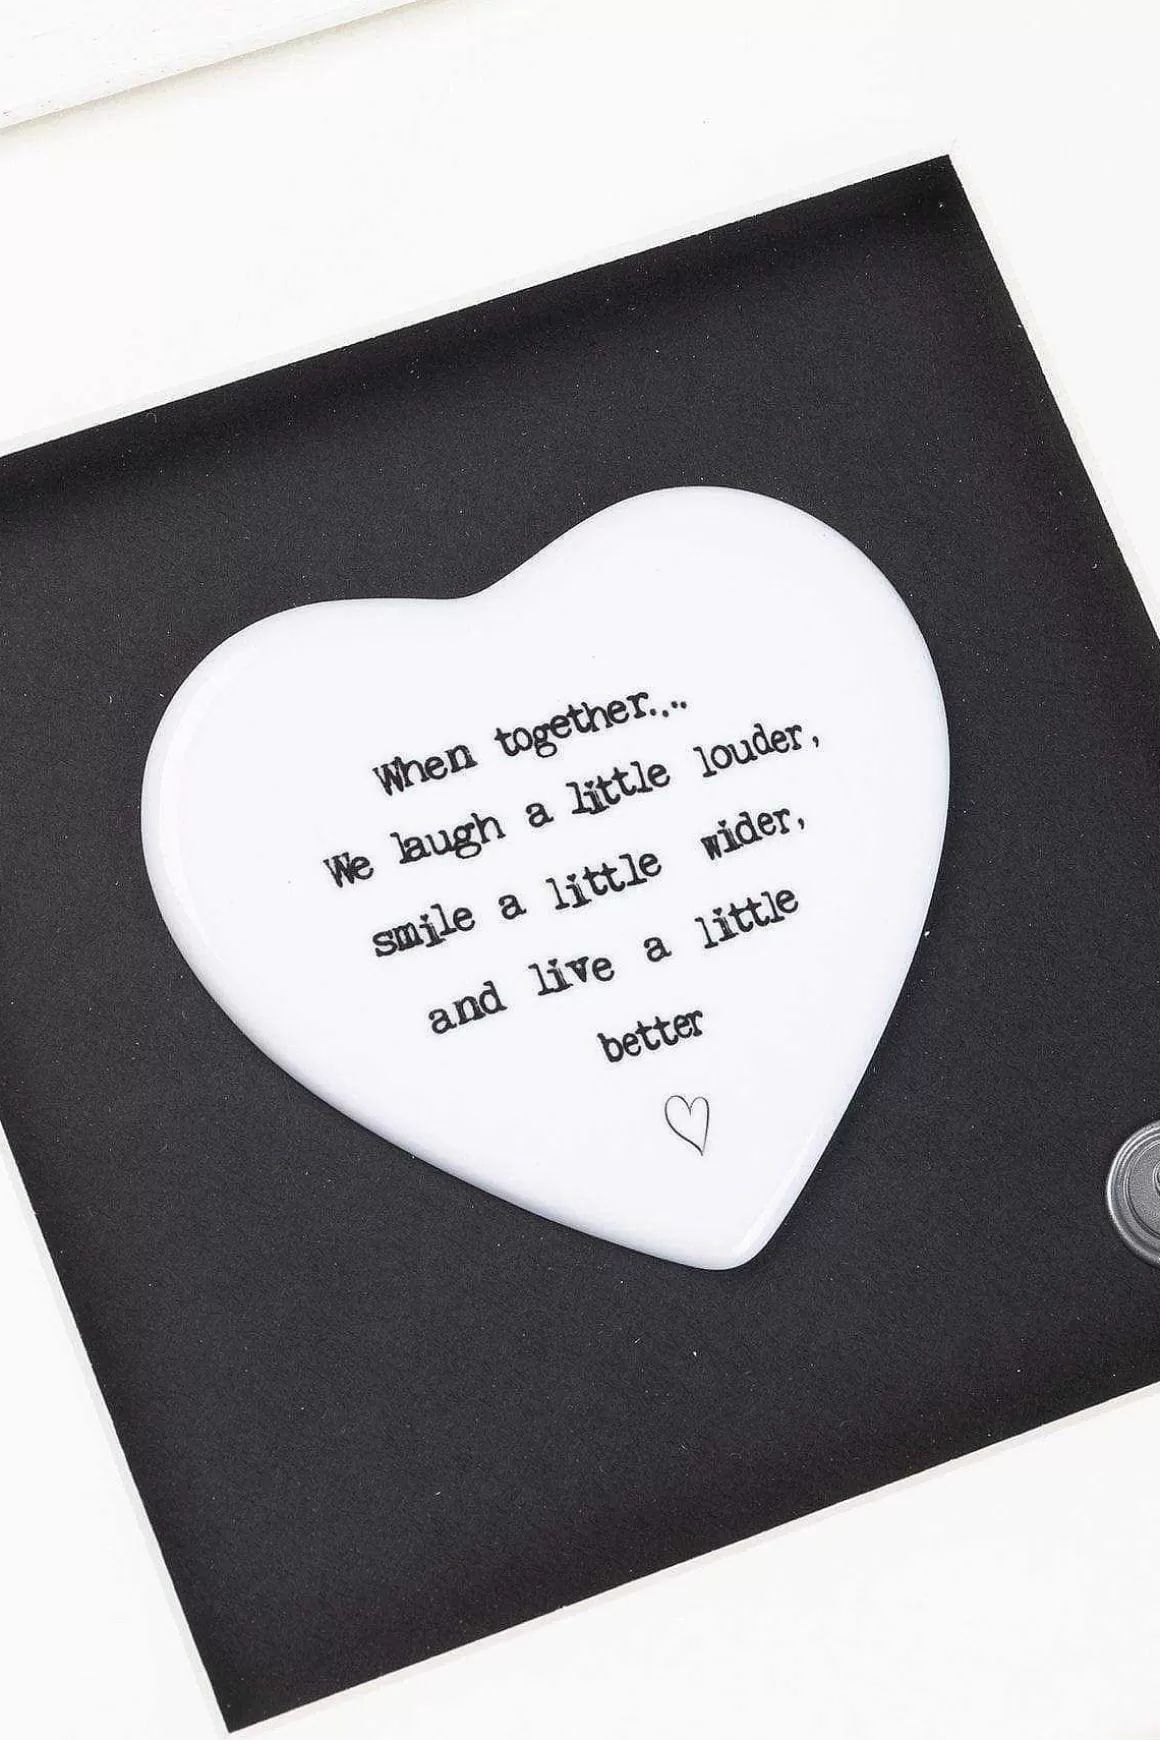 When together...
We laugh a little louder,
smile a little wider,
and live a little
better